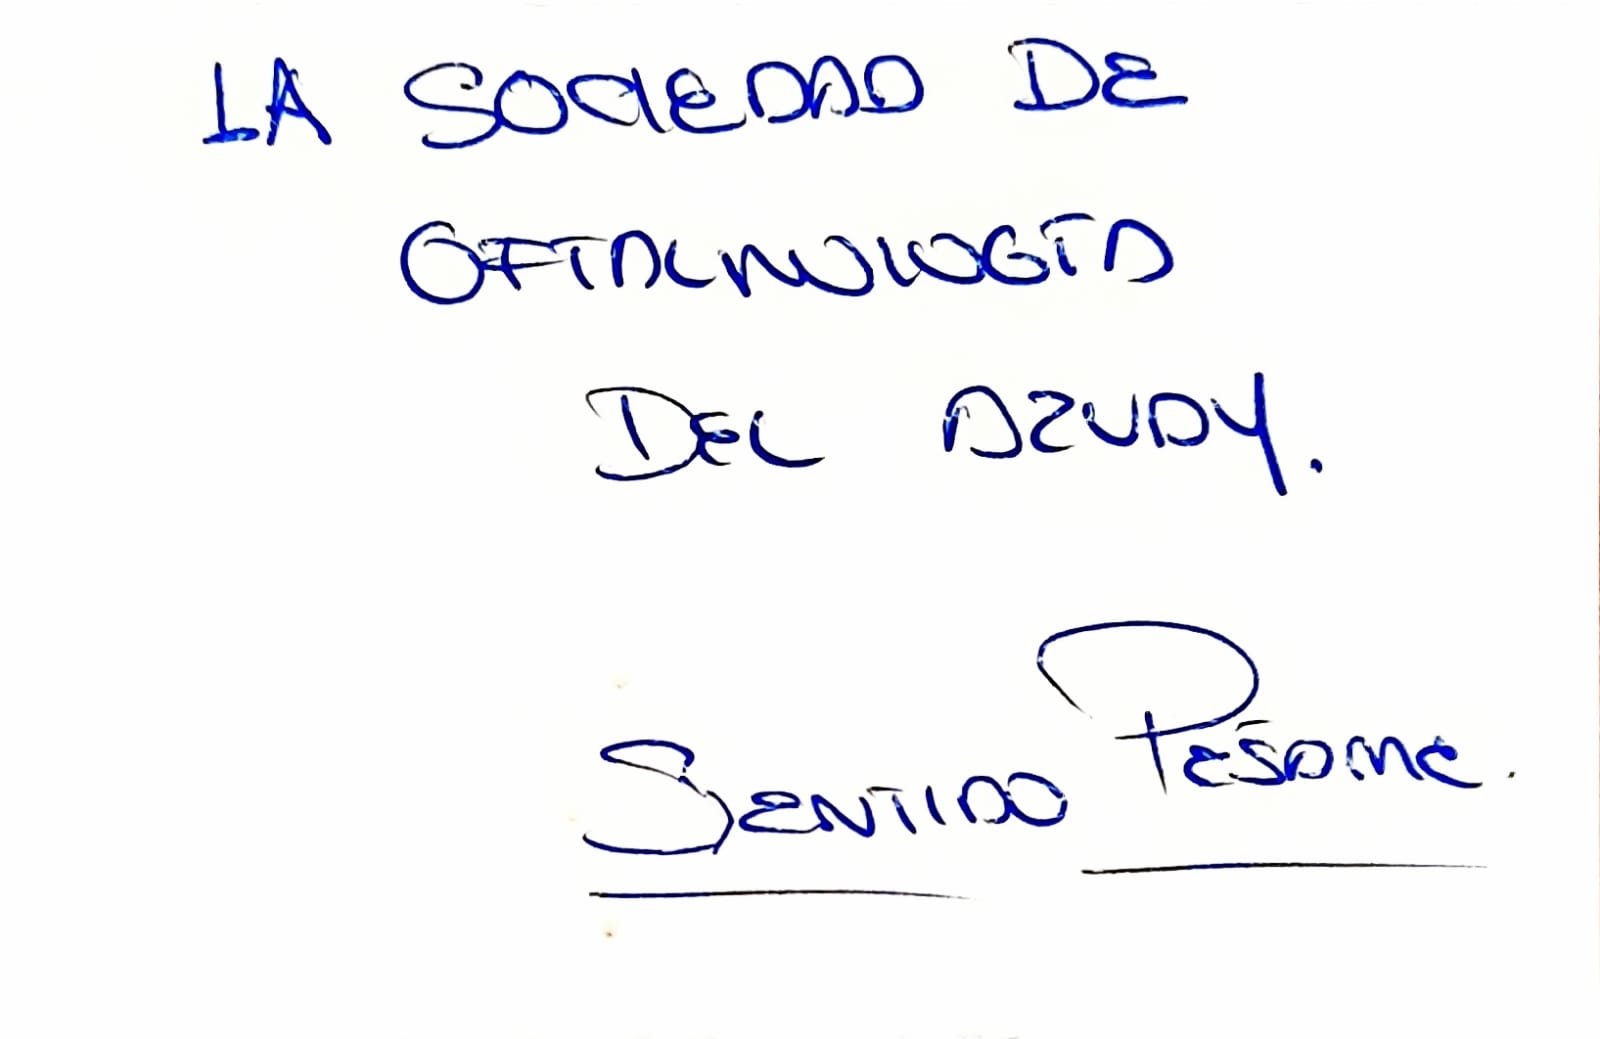 LA SOCIEDAD DE
OFTALMOLOGÍA
DEL AZUAY.
SENTIDO PÉSAME.